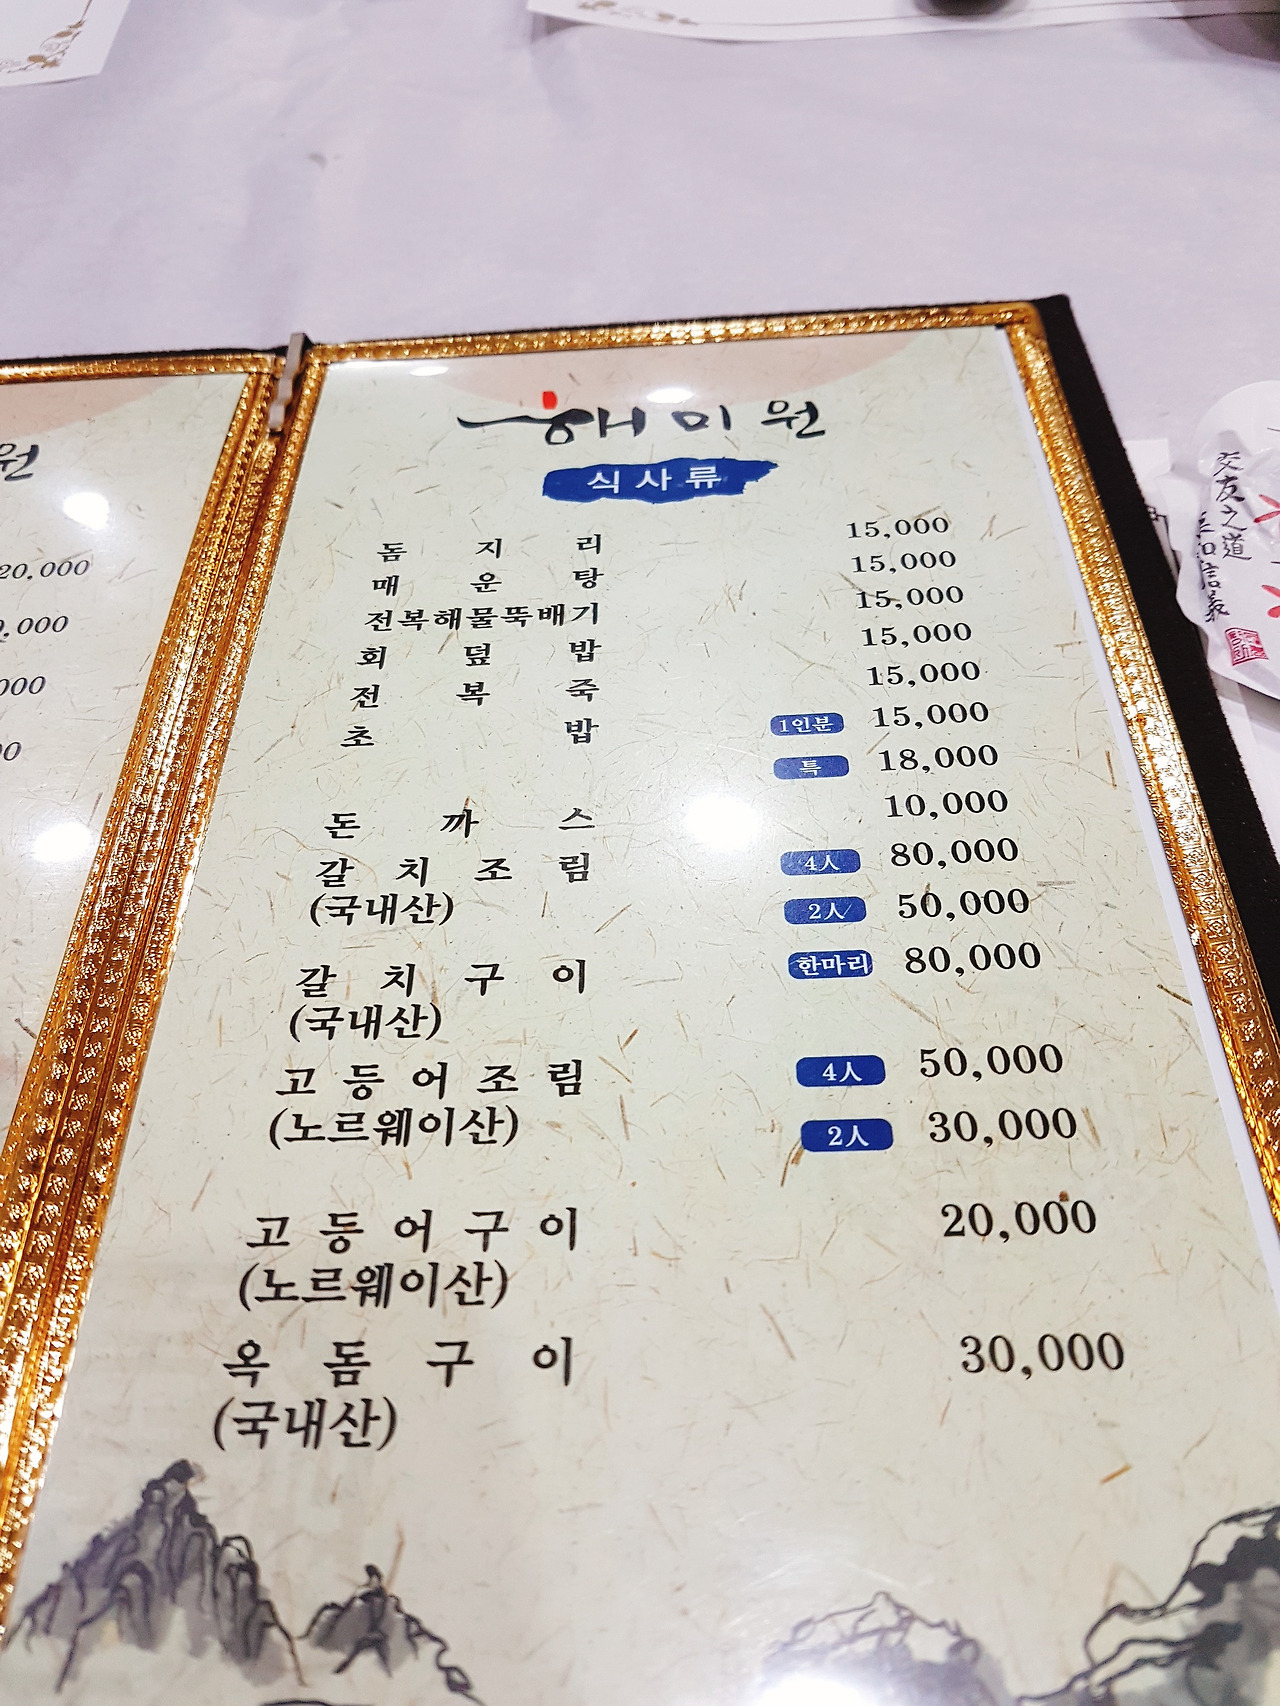 원
20,000
000
해미원
식사류
돔지리 15,000
매운탕 15,000
전복해물뚝배기 15,000
회덮밥 15,000
전복죽 15,000
초밥 1인분 15,000
특 18,000
돈까스 10,000
갈치조림 4人 80,000
(국내산) 2人 50,000
갈치구이 한마리 80,000
(국내산)
고등어조림 4人 50,000
(노르웨이산) 2人 30,000
고등어구이 20,000
(노르웨이산)
옥돔구이 30,000
(국내산)
交友之道
信義